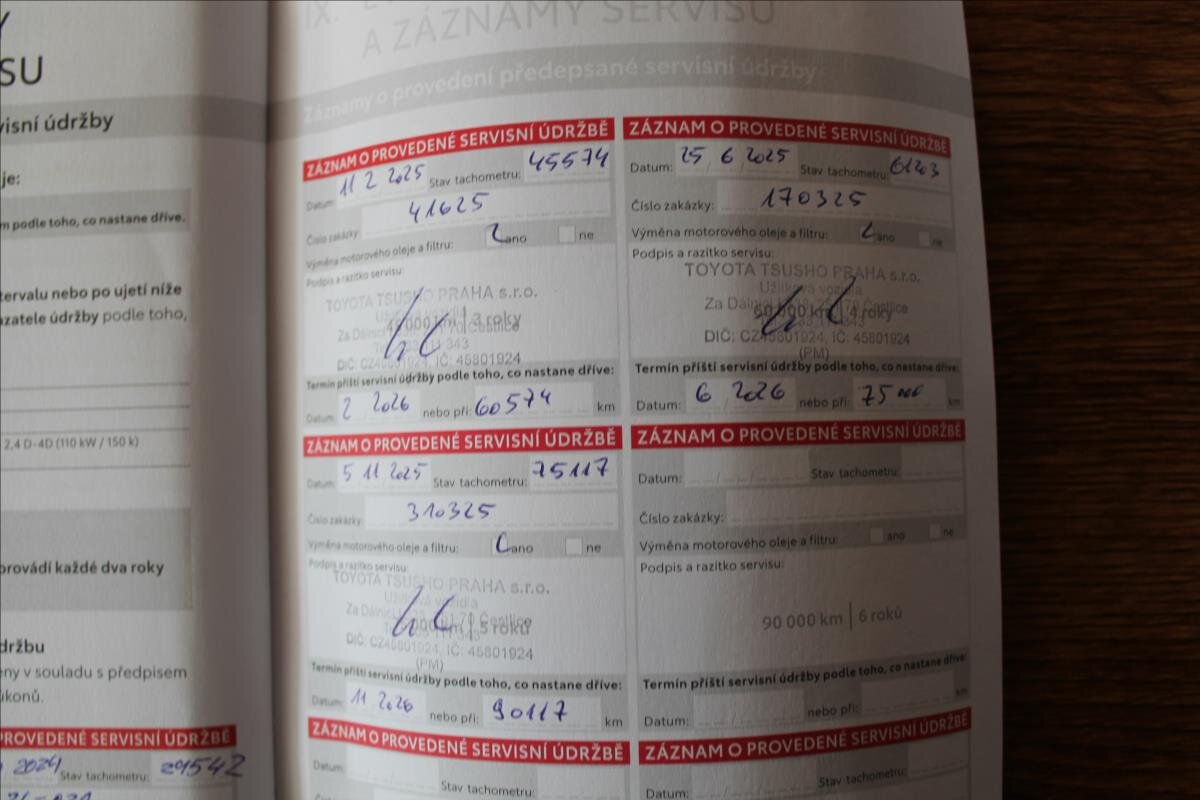 SU
visní údržby
je:
m podle toho, co nastane dříve.
tervalu nebo po ujetí níže
azatele údržby podle toho,
2,4 D-4D (110 kW / 150 k)
provádí každé dva roky
držbu
eny v souladu s předpisem
úkonů.
PROVEDENÉ SERVISNÍ ÚDRŽBĚ
2024 Stav tachometru: 29542
IX.
A ZÁZNAMY SERVISU
Záznamy o provedení předepsané servisní údržby
ZÁZNAM O PROVEDENÉ SERVISNÍ ÚDRŽBĚ
Datum: 11 2 2025 Stav tachometru: 45574
Číslo zakázky: 41625
Výměna motorového oleje a filtru: ano ne
Podpis a razítko servisu:
TOYOTA TSUSHO PRAHA s.r.o.
45 000 km | 3 roky
DIČ: CZ45801924, IČ: 45801924
Termín příští servisní údržby podle toho, co nastane dříve:
Datum: 2 2026 nebo při: 60574 km
ZÁZNAM O PROVEDENÉ SERVISNÍ ÚDRŽBĚ
Datum: 25 6 2025 Stav tachometru: 61203
Číslo zakázky: 170325
Výměna motorového oleje a filtru: ano ne
Podpis a razítko servisu:
TOYOTA TSUSHO PRAHA s.r.o.
Užitková vozidla
60 000 km | 4 roky
DIČ: CZ45801924, IČ: 45801924
(PM)
Termín příští servisní údržby podle toho, co nastane dříve:
Datum: 6 2026 nebo při: 75000 km
ZÁZNAM O PROVEDENÉ SERVISNÍ ÚDRŽBĚ
Datum: 5 11 2025 Stav tachometru: 75117
Číslo zakázky: 310325
Výměna motorového oleje a filtru: ano ne
Podpis a razítko servisu:
TOYOTA TSUSHO PRAHA s.r.o.
Užitková vozidla
km | 5 roků
DIČ: CZ45801924, IČ: 45801924
(PM)
Termín příští servisní údržby podle toho, co nastane dříve:
Datum: 11 2026 nebo při: 90117 km
ZÁZNAM O PROVEDENÉ SERVISNÍ ÚDRŽBĚ
Datum: Stav tachometru:
Číslo zakázky:
Výměna motorového oleje a filtru: ano ne
Podpis a razítko servisu:
90 000 km | 6 roků
Termín příští servisní údržby podle toho, co nastane dříve:
Datum: nebo při: km
ZÁZNAM O PROVEDENÉ SERVISNÍ ÚDRŽBĚ
Datum: Stav tachometru:
ZÁZNAM O PROVEDENÉ SERVISNÍ ÚDRŽBĚ
Datum: Stav tachometru: